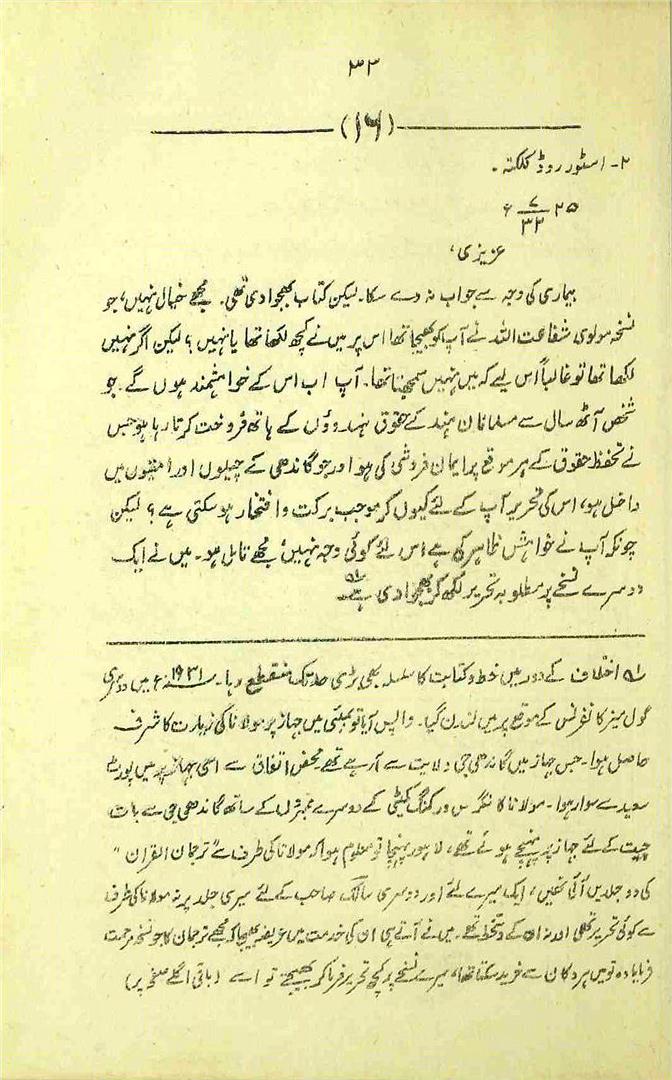 ۳۳
(۱۶)
۲- اسٹور روڈ کلکتہ ۔
۲۵ ۷/۳۲ ء
عزیزی،
بیماری کی وجہ سے جواب نہ دے سکا۔ لیکن کتاب بھجوا دی تھی۔ مجھے خیال نہیں، جو
نسخہ مولوی شفاعت اللہ نے آپ کو بھیجا تھا اس پر میں نے کچھ لکھا تھا یا نہیں؟ لیکن اگر نہیں
لکھا تھا تو غالباً اس لیے کہ میں نہیں سمجھتا تھا۔ آپ اب اس کے خواہشمند ہوں گے۔ جو
شخص آٹھ سال سے مسلمانان ہند کے حقوق ہندوؤں کے ہاتھ فروخت کرتا رہا ہو جس
نے تحفظ حقوق کے ہر موقع پر ایمان فروشی کی ہو اور جو گاندھی کے چیلوں اور امتیوں میں
داخل ہو، اس کی تحریر آپ کے لئے کیوں کر موجب برکت و افتخار ہو سکتی ہے؟ لیکن
چونکہ آپ نے خواہش ظاہر کی ہے اس لئے کوئی وجہ نہیں مجھے تامل ہو۔ میں نے ایک
دوسرے نسخے پر مطلوبہ تحریر لکھ کر بھجوا دی ہے
اختلاف کے دور میں خط و کتابت کا سلسلہ بھی بڑی حد تک منقطع رہا۔ ۱۹۳۱ء میں دوسری
گول میز کانفرنس کے موقع پر میں لندن گیا۔ واپس آیا تو بمبئی میں جہاز پر مولانا کی زیارت کا شرف
حاصل ہوا۔ جس جہاز میں گاندھی جی ولایت سے آرہے تھے۔ محض اتفاق سے اسی جہاز پر میں پورٹ
سعید سے سوار ہوا۔ مولانا کانگرس ورکنگ کمیٹی کے دوسرے ممبروں کے ساتھ گاندھی جی سے بات
چیت کے لئے جہاز پر پہنچے ہوئے تھے، لاہور پہنچا تو معلوم ہوا کہ مولانا کی طرف سے "ترجمان القرآن"
کی دو جلدیں آئی تھیں، ایک میرے لئے اور دوسری سالک صاحب کے لئے میری جلد پر نہ مولانا کی طرف
سے کوئی تحریر تھی اور نہ ان کے دستخط تھے۔ میں نے آتے ہی ان کی خدمت میں عریضہ بھیجا کہ مجھے ترجمان کا جو نسخہ مرحمت
فرمایا وہ تو میں ہر دکان سے خرید سکتا تھا، میرے نسخے پر کچھ تحریر فرما کر بھیجتے تو اسے (باقی اگلے صفحے پر)